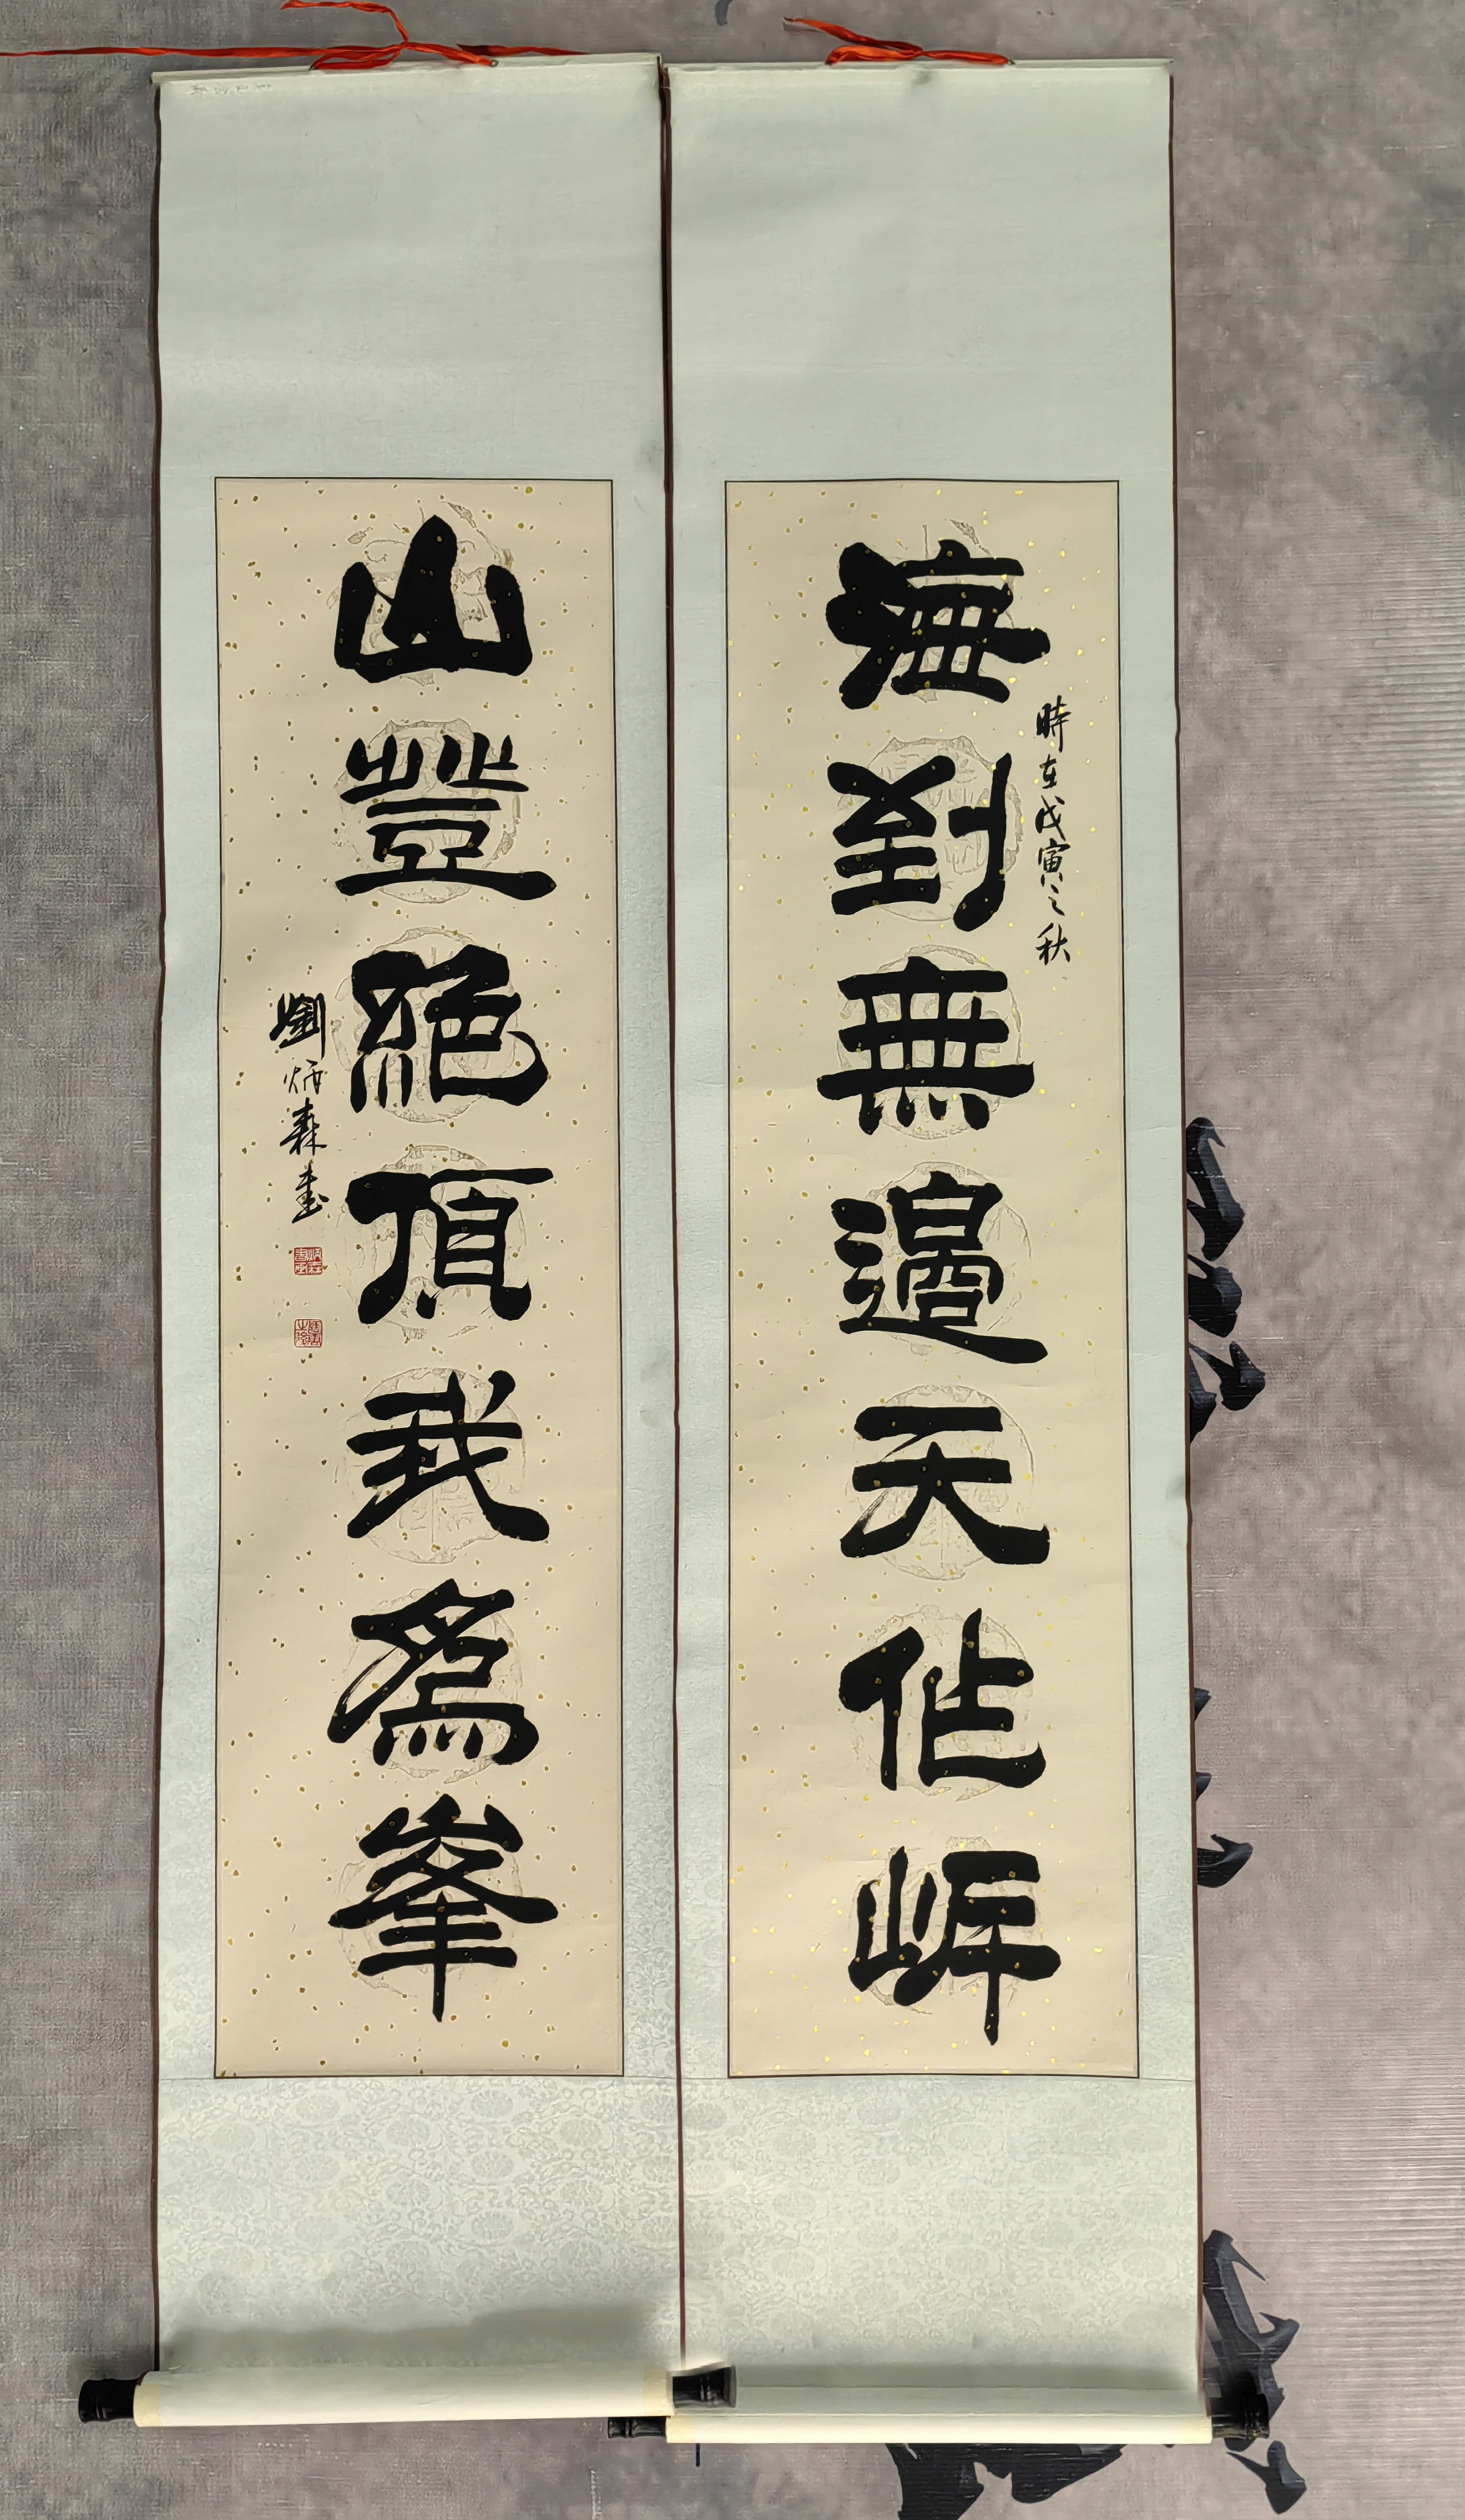 海到無邊天作岸
時在戊寅之秋
山登絕頂我爲峯
劉炳森書